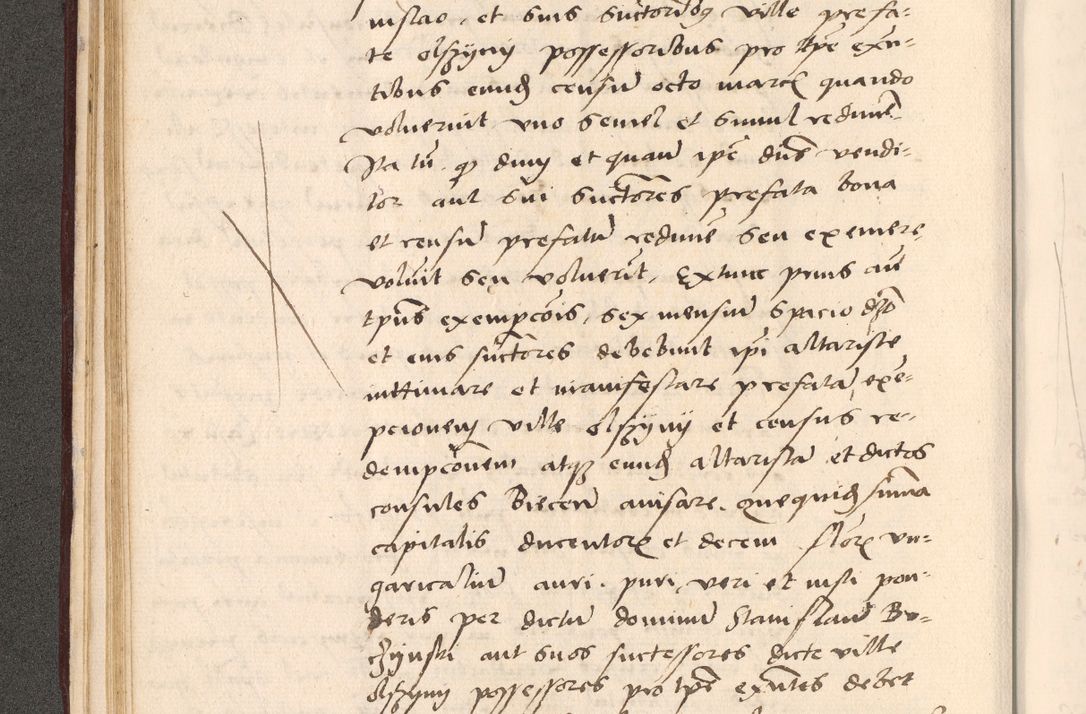 nislao, et suis successoribus ville prefa-
te olszyny possessoribus pro tpe exn-
tibus eundem censum octo marcarum quando
voluerint uno semel et simul redimere
Ita tn. q dum et quam ipse dns vendi-
tor aut sui successores prefata bona
et censum prefatum redimere seu eximere
voluit seu voluerit, Extunc prius an
tpus exempcois, sex mensium spacio dcto
et eius successores debebunt ipi altariste
intimare et manifestare prefatam exe-
pcionem ville olszyny et census re-
dempconem atque eundem altaristam et dictos
consules Biecen avisare. quequidem summa
capitalis ducentorum et decem florenorum un-
garicalium auri. puri veri et iusti pon-
deris per dictum dominum Stanislaum Bo-
czynski aut suos successores dicte ville
olszyny possessores pro tpe exntes debet